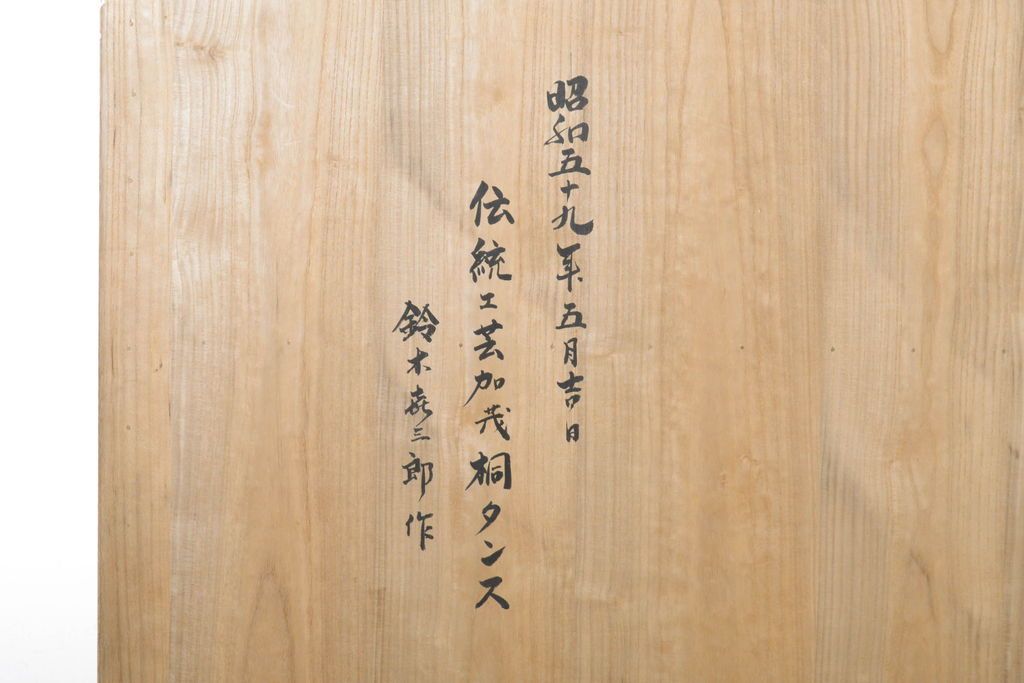 昭和五十九年五月吉日
伝統工芸加茂桐タンス
鈴木喜三郎作